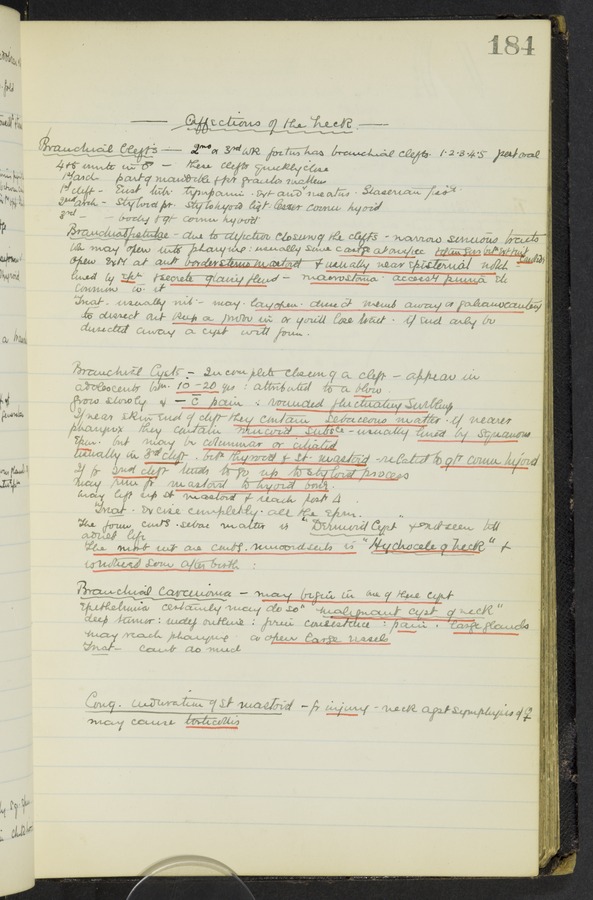 184
Affections of the Neck
Branchial Clefts — 2nd or 3rd WK foetus has branchial clefts 1·2·3·4·5 post oral
4+5 unite — these clefts quickly close
1st arch part of mandible + for
1st cleft - Eust tube tympanic - Ext aud meatus. Glaserian fiss
2nd arch - Styloid pr. stylohyoid ligt. lesser cornu hyoid
3rd - body + gt cornu hyoid
Branchial fistulae - due to defective closure of the clefts - narrow sinuous tracts
We may open into pharynx : usually
open ext at ant border sterno mastoid + usually near episternal notch
lined by ept + secrete glairy fluid - macrostoma - accessy pinna etc
common to it
Treat. usually nil - may lay open. dissect memb away or galvanocautery
to dissect out keep a probe in or you'll lose tract - if end only be
dissected away a cyst will form.
Branchial Cysts - Incomplete closure of a cleft - appear in
adolescents bet. 10-20 yrs : attributed to a blow.
grow slowly & - c pain : rounded fluctuating swelling
If near skin end of cleft they contain sebaceous matter. if nearer
pharynx they contain mucoid subst - usually lined by squamous
epm. but may be columnar or ciliated
usually in 3rd cleft. bet. thyroid & st. mastoid - related to gt cornu hyoid
If fr 2nd cleft tends to go up to styloid process
may run fr mastoid to hyoid bone.
may lift up st mastoid & reach post Δ.
Treat. Excise completely. all the epm.
The form contg. sebac matter is "Dermoid Cyst" + not seen till
adult life
The most int are contg. mucoid subs is "Hydrocele of neck" +
is noticed soon after birth :
Branchial Carcinoma - may begin in one of these cysts
Epithelioma certainly may do so "malignant cyst of neck"
deep tumor : undef outline : firm consistence : pain. large glands
may reach pharynx or open large vessels
Treat - cant do much
Cong. induration of St mastoid - fr injury - neck agst symphysis of ♀
may cause torticollis